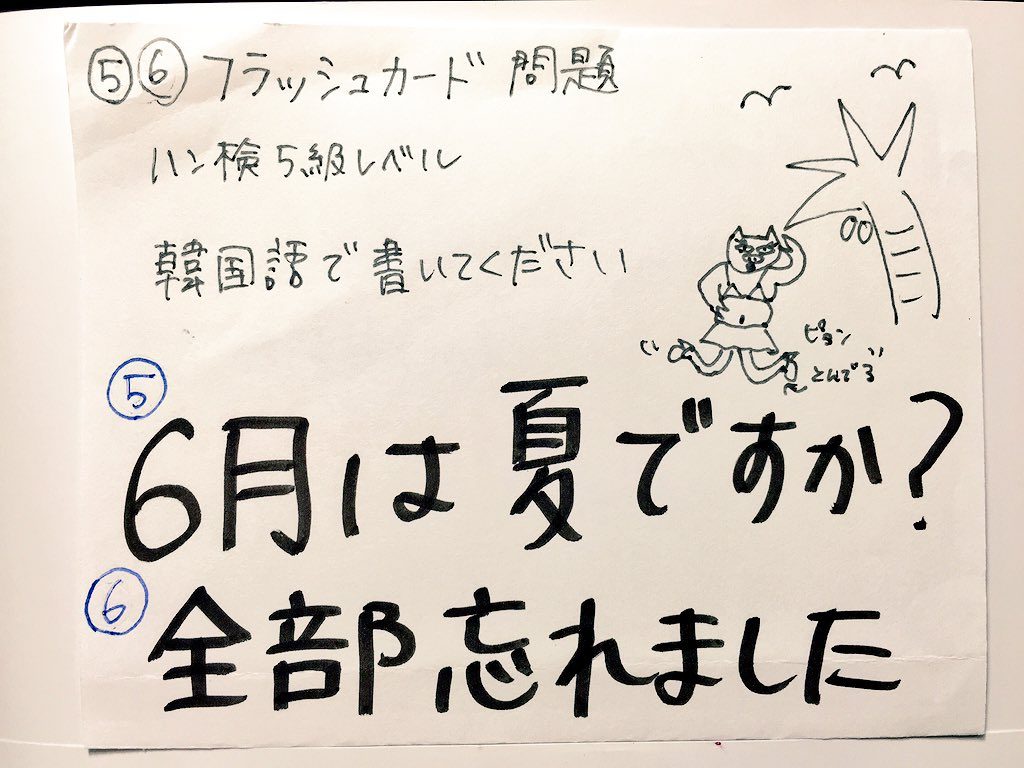 ⑤⑥ フラッシュカード 問題
ハン検5級レベル
韓国語で書いてください
ピョン
とんでる
⑤
6月は夏ですか?
⑥
全部忘れました